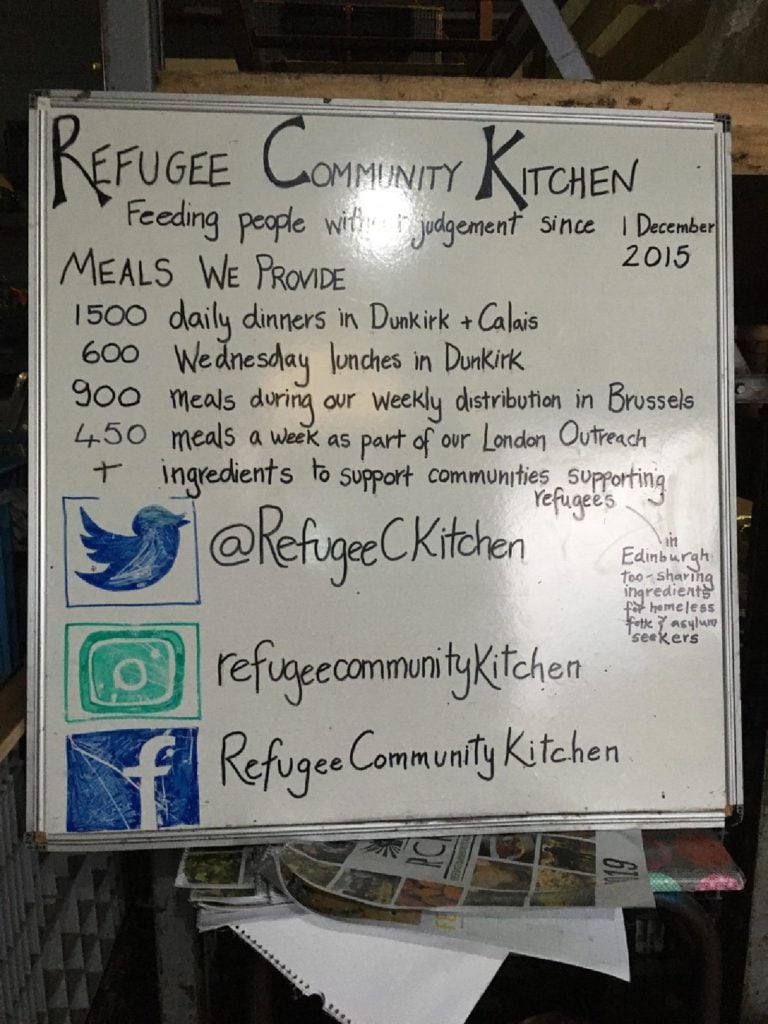 REFUGEE COMMUNITY KITCHEN
Feeding people judgement since 1 December
2015
MEALS WE PROVIDE
1500 daily dinners in Dunkirk + Calais
600 Wednesday lunches in Dunkirk
900 meals during our weekly distribution in Brussels
450 meals a week as part of our London Outreach
+ ingredients to support communities supporting
refugees
in
Edinburgh
too-sharing
ingredients
for homeless
folk & asylum
seekers
@RefugeeCKitchen
refugeecommunityKitchen
f RefugeeCommunityKitchen